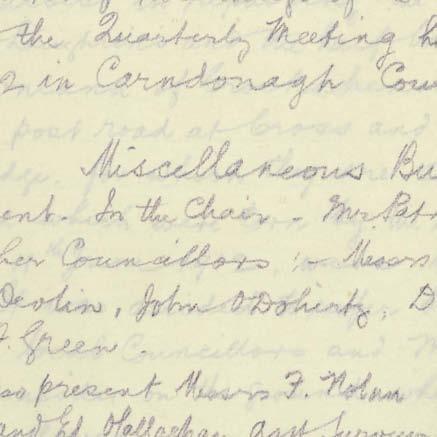 the Quarterly Meeting h
2 in Carndonagh Cou
Miscellaneous Bu
ent. In the Chair - Mr. Patr
her Councillors :- Messrs
Devlin, John O'Doherty, D
J. Green
so present Messrs F. Nolan
and Ed. O'Callaghan, Asst Surveyor